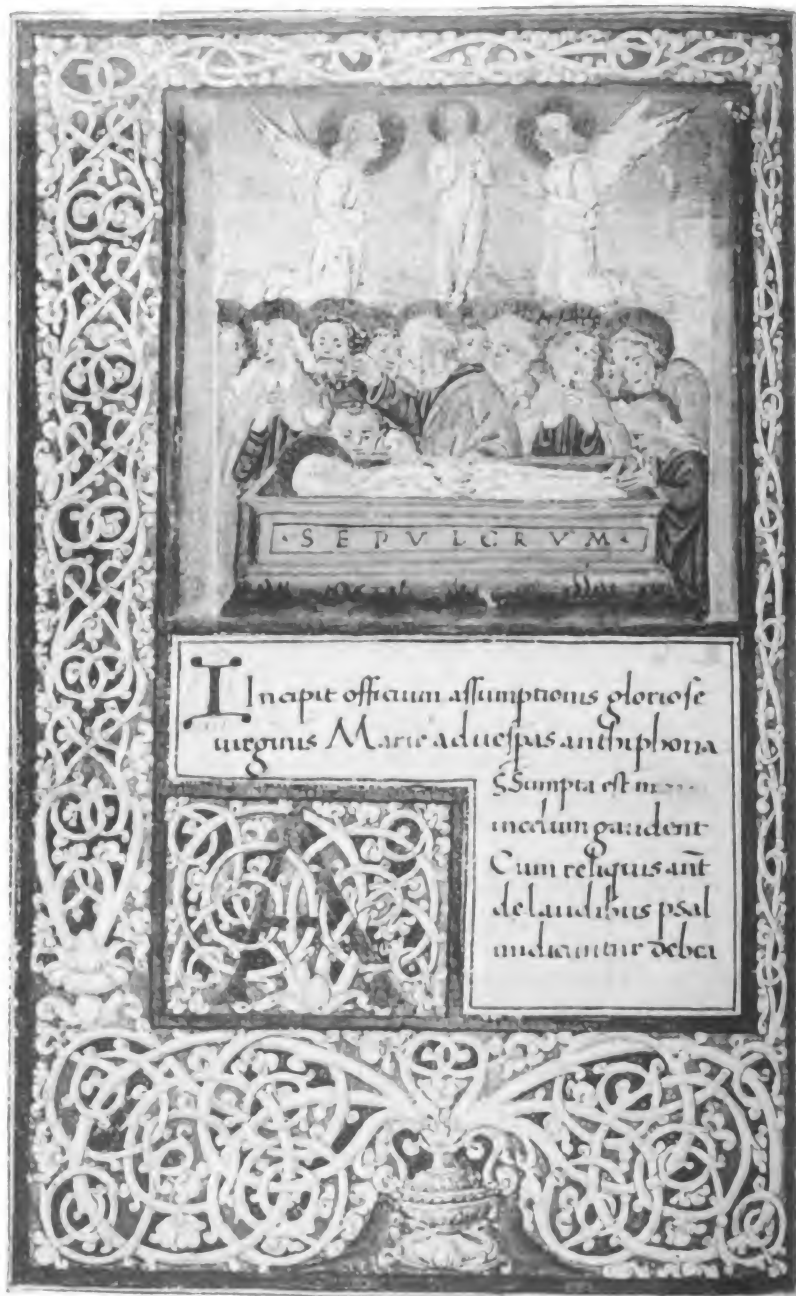 · S E P V L C R V M ·
Incipit officium assumptionis gloriose
uirginis Marie ad uespas anthiphona
A
SSumpta est m
in celum gaudent
Cum reliquis ant
de laudibus psal
mi dicuntur de bea